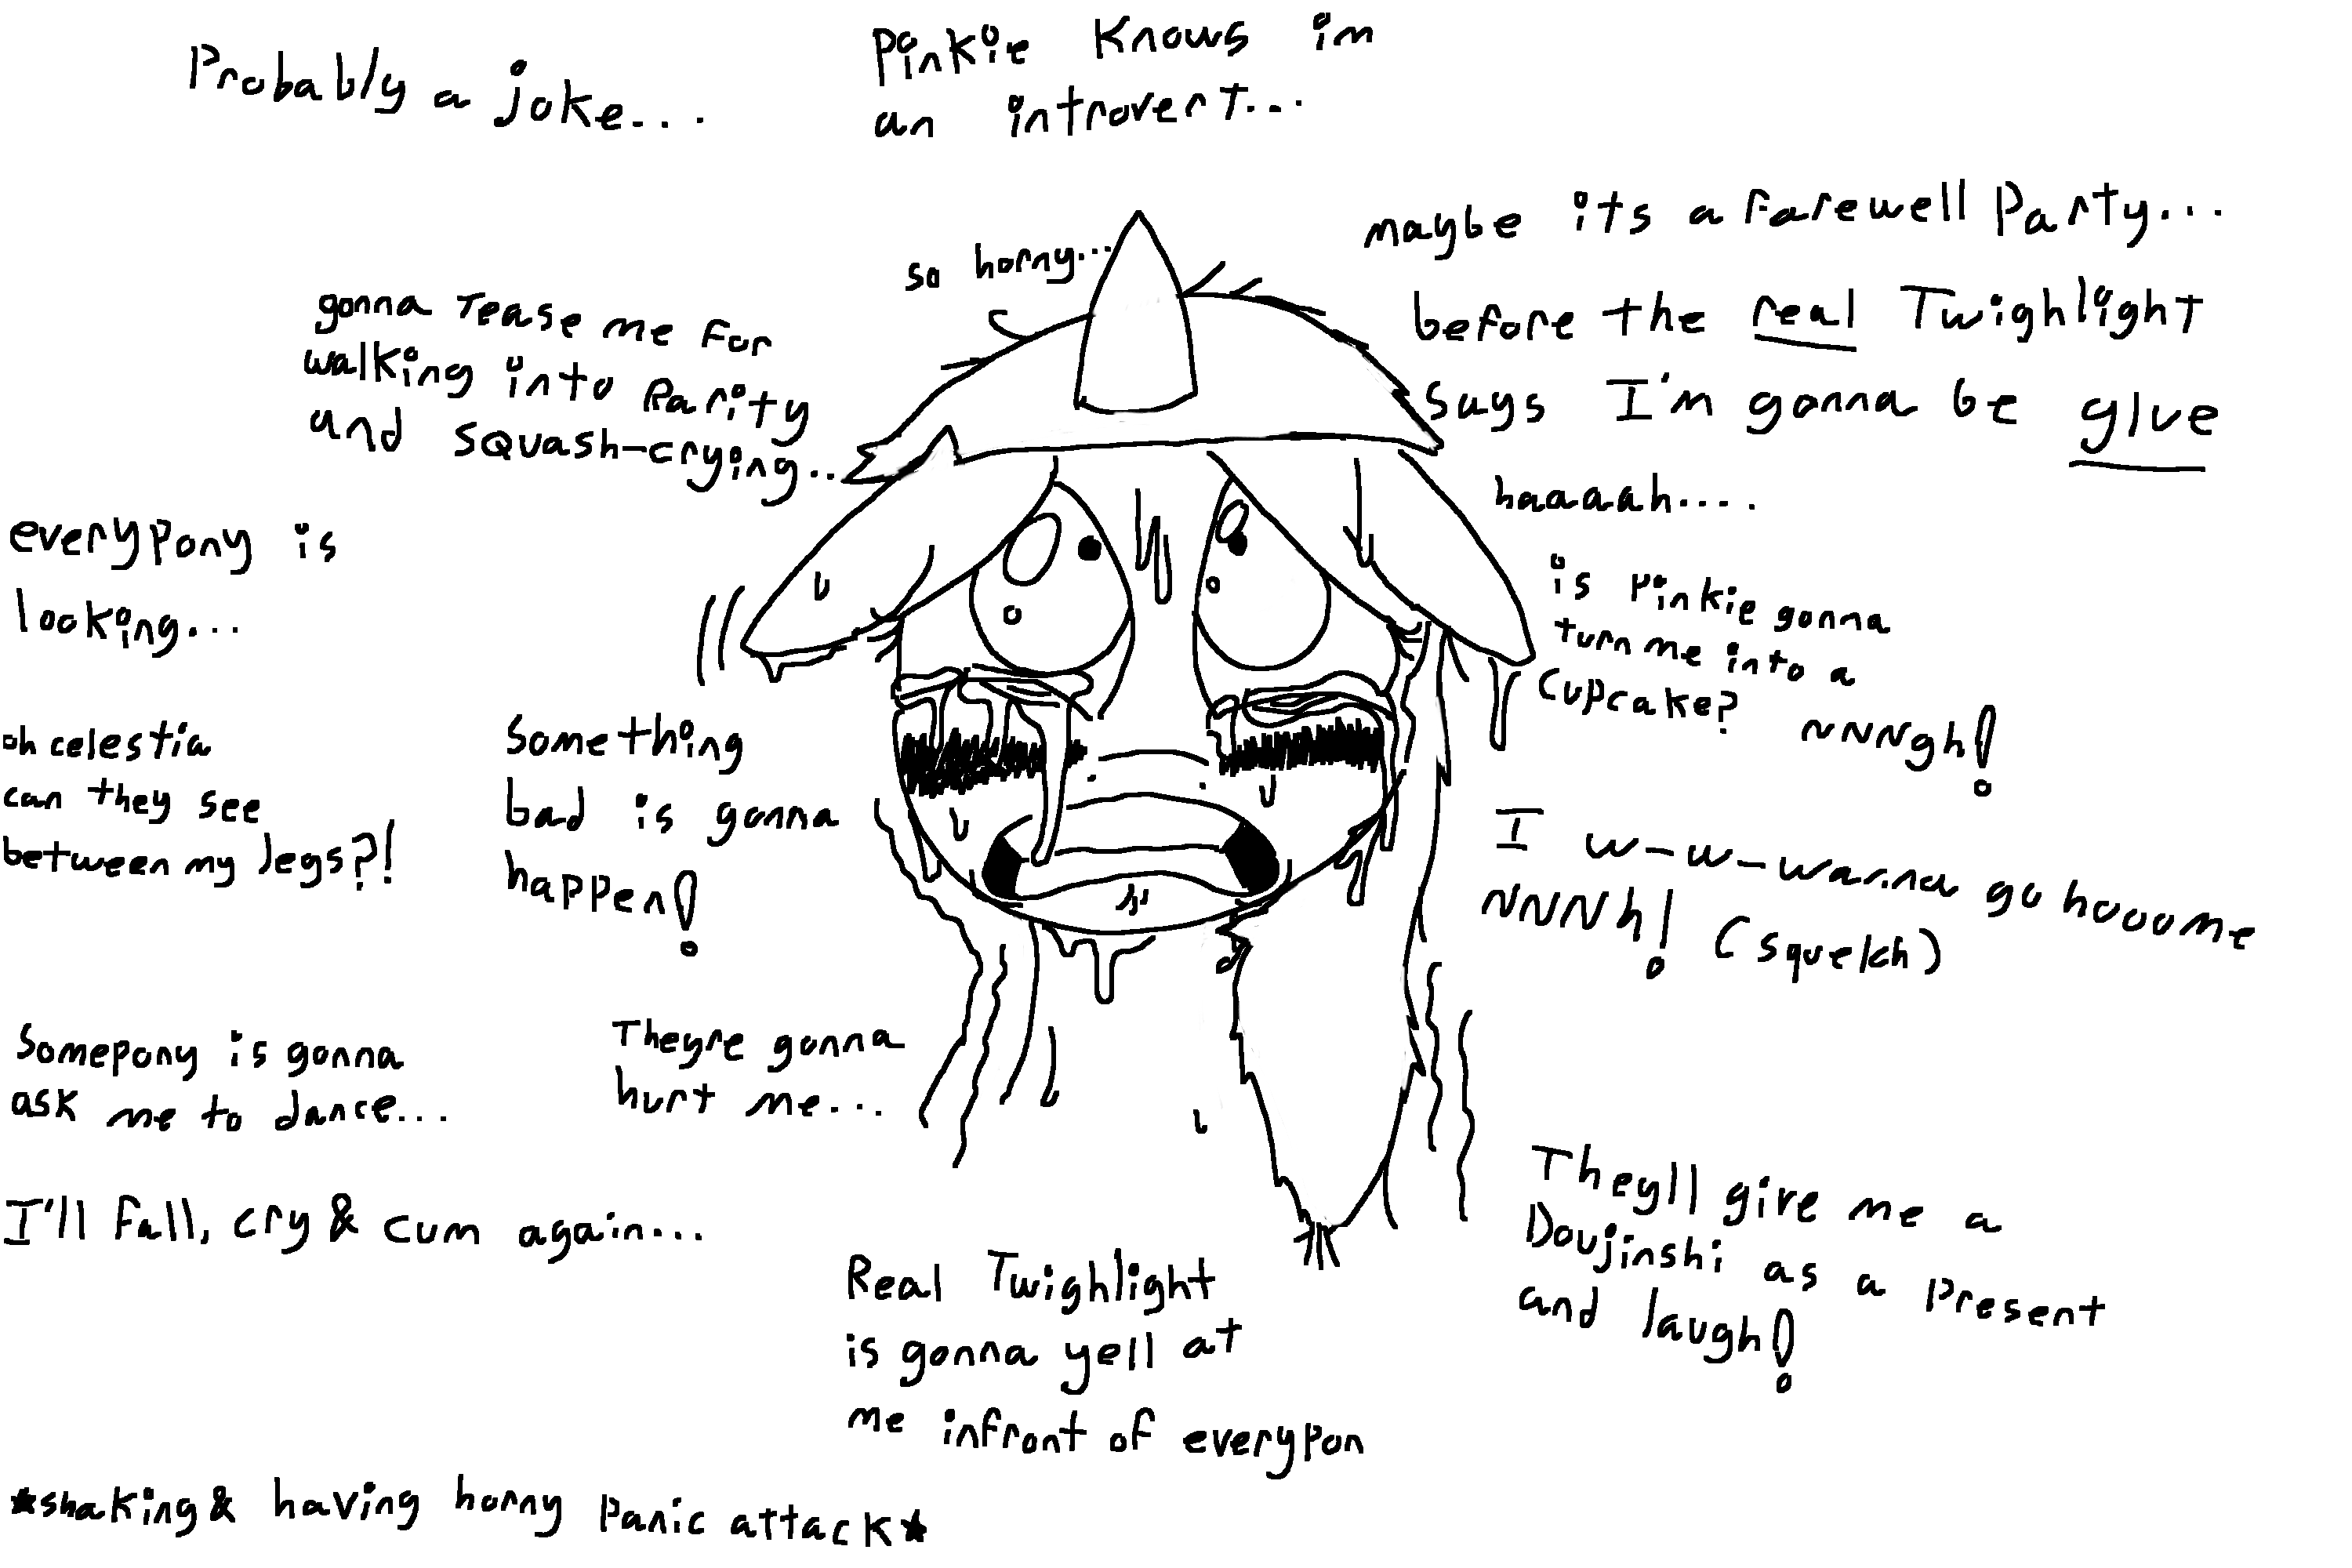 Probably a joke...
Pinkie Knows im
an introvert...
so horny...
maybe its a farewell Party...
before the real Twighlight
says I'm gonna be glue
gonna Tease me for
walking into Rarity
and squash-crying...
haaaah....
everypony is
looking...
is Pinkie gonna
turn me into a
cupcake? NNNgh!
oh celestia
can they see
between my legs?!
Something
bad is gonna
happen!
I w-w-wanna go hooome
NNNNh! (squelch)
Somepony is gonna
ask me to dance...
Theyre gonna
hurt me...
I'll fall, cry & cum again...
Theyll give me a
Doujinshi as a present
and laugh!
Real Twighlight
is gonna yell at
me infront of everypon
*shaking & having horny panic attack*